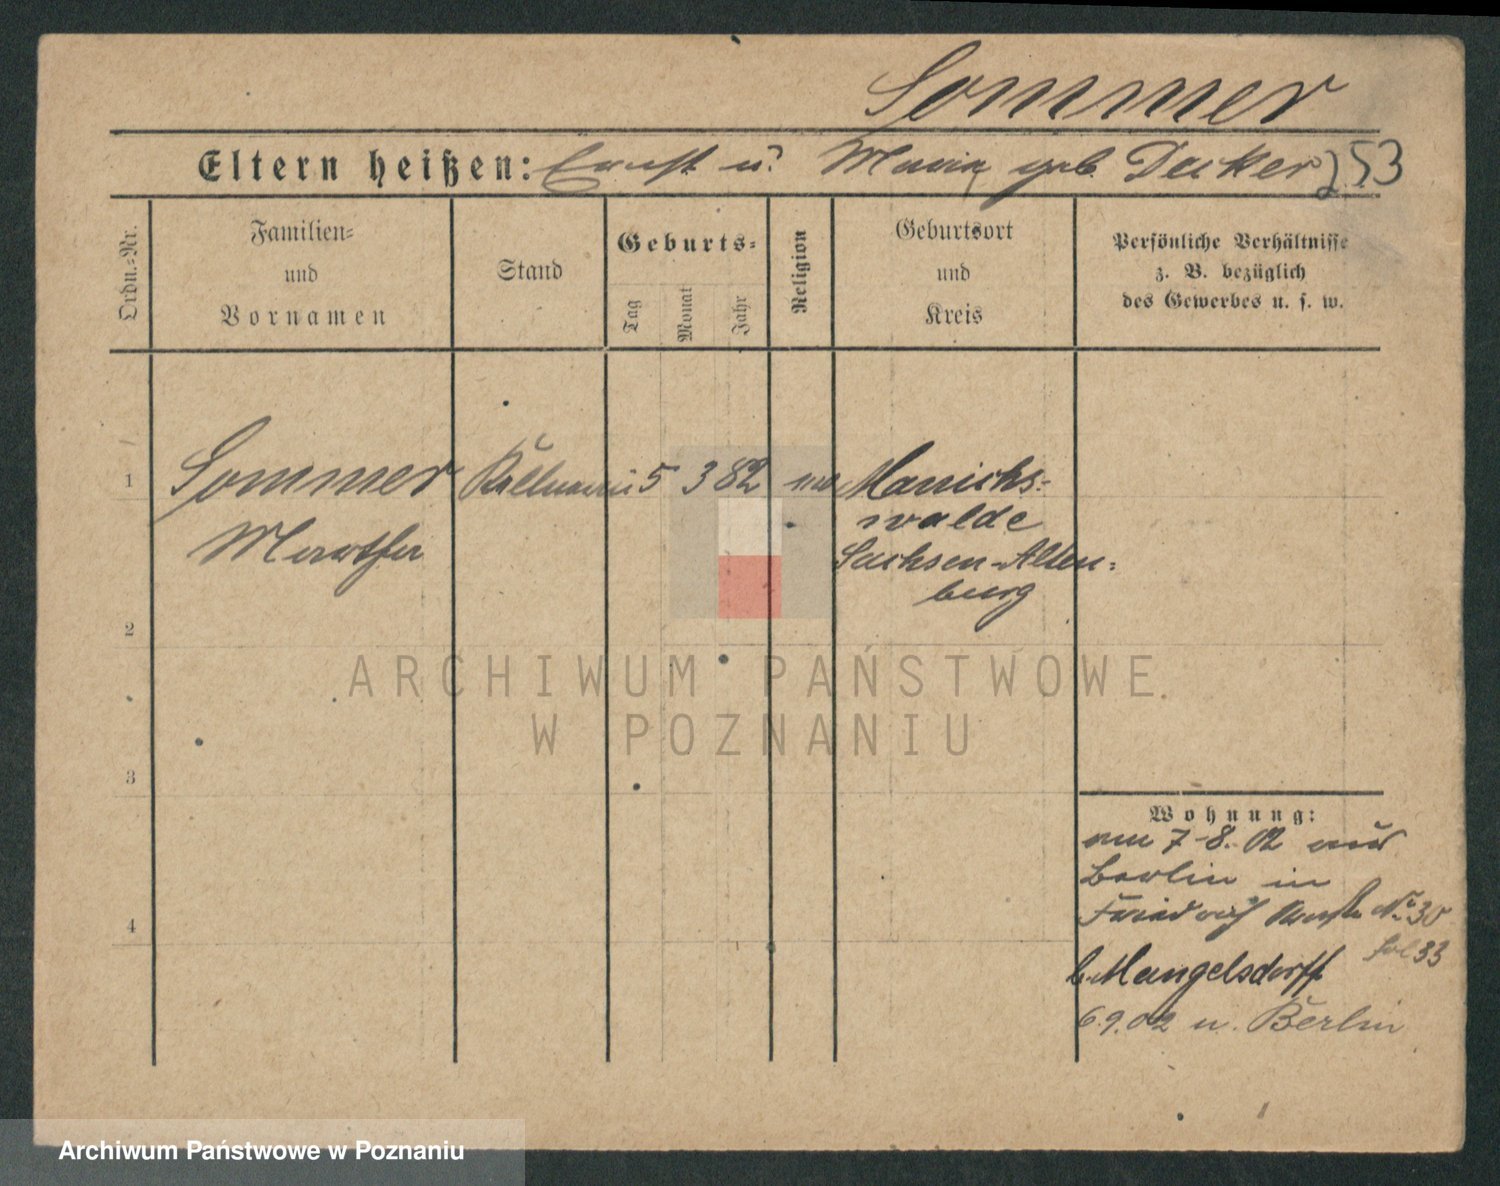 Sommer
Eltern heißen: Ernst u. Maria geb. Decker 253
Ordn.-Nr.
Familien-
und
Vornamen
Stand
Geburts-
Tag
Monat
Jahr
Religion
Geburtsort
und
Kreis
Persönliche Verhältnisse
z. B. bezüglich
des Gewerbes u. s. w.
1
Sommer
Martha
Kellnerin
5 3 82
Mannichs-
walde
Sachsen-Alten-
burg
2
3
4
Wohnung:
am 7-8.02 aus
Berlin in
Friedrichstr No 30
fol 33
b. Mangelsdorff
6.9.02 n. Berlin
ARCHIWUM PAŃSTWOWE
W POZNANIU
Archiwum Państwowe w Poznaniu